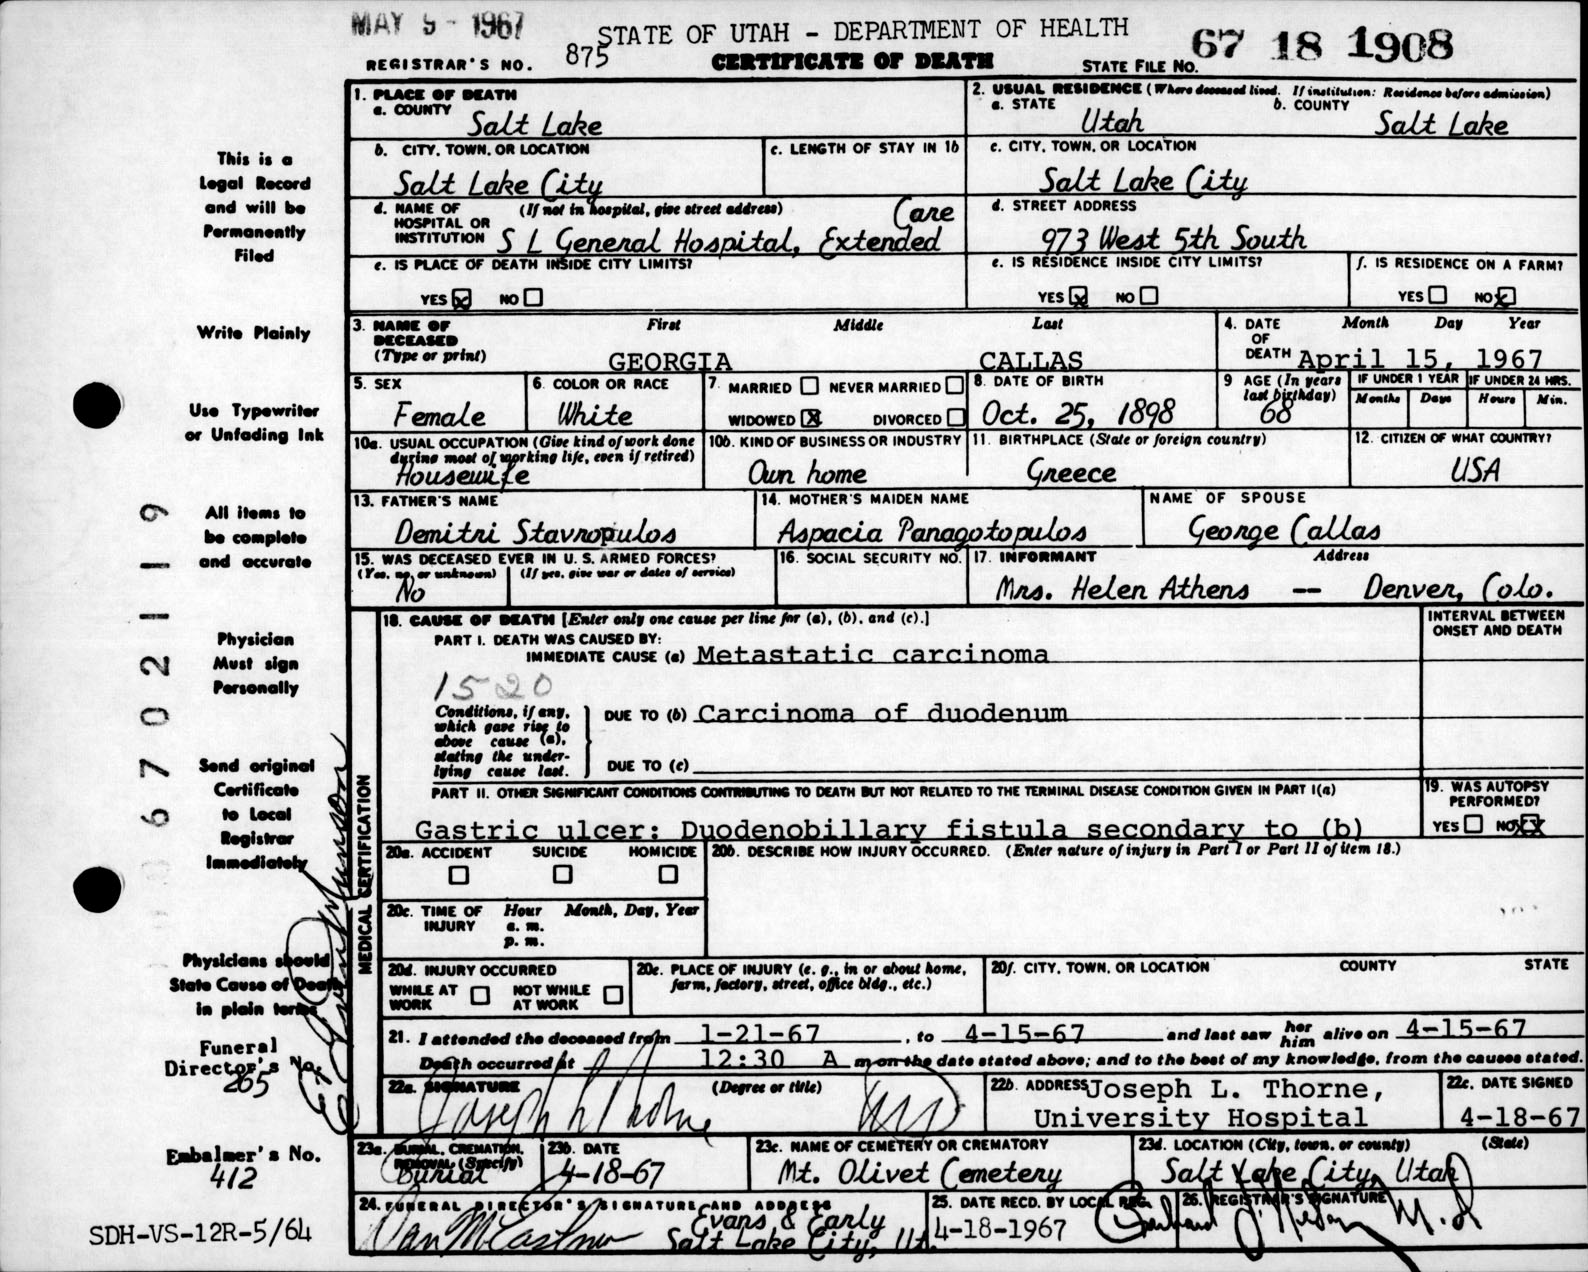 MAY 9 - 1967
STATE OF UTAH - DEPARTMENT OF HEALTH
67 18 1908
REGISTRAR'S NO. 875 CERTIFICATE OF DEATH STATE FILE NO.
1. PLACE OF DEATH
a. COUNTY
Salt Lake
2. USUAL RESIDENCE (Where deceased lived. If institution: Residence before admission)
a. STATE b. COUNTY
Utah Salt Lake
b. CITY, TOWN, OR LOCATION c. LENGTH OF STAY IN 1b
Salt Lake City
c. CITY, TOWN, OR LOCATION
Salt Lake City
d. NAME OF HOSPITAL OR INSTITUTION (If not in hospital, give street address)
S L General Hospital, Extended Care
d. STREET ADDRESS
973 West 5th South
e. IS PLACE OF DEATH INSIDE CITY LIMITS?
YES X NO
e. IS RESIDENCE INSIDE CITY LIMITS?
YES X NO
f. IS RESIDENCE ON A FARM?
YES NO X
3. NAME OF DECEASED (Type or print) First Middle Last
GEORGIA CALLAS
4. DATE OF DEATH Month Day Year
April 15, 1967
5. SEX
Female
6. COLOR OR RACE
White
7. MARRIED NEVER MARRIED
WIDOWED X DIVORCED
8. DATE OF BIRTH
Oct. 25, 1898
9 AGE (In years last birthday)
68
IF UNDER 1 YEAR IF UNDER 24 HRS.
Months Days Hours Min.
10a. USUAL OCCUPATION (Give kind of work done during most of working life, even if retired)
Housewife
10b. KIND OF BUSINESS OR INDUSTRY
Own home
11. BIRTHPLACE (State or foreign country)
Greece
12. CITIZEN OF WHAT COUNTRY?
USA
13. FATHER'S NAME
Demitri Stavropulos
14. MOTHER'S MAIDEN NAME
Aspacia Panagotopulos
NAME OF SPOUSE
George Callas
15. WAS DECEASED EVER IN U. S. ARMED FORCES?
(Yes, no, or unknown) (If yes, give war or dates of service)
No
16. SOCIAL SECURITY NO.
17. INFORMANT Address
Mrs. Helen Athens -- Denver, Colo.
MEDICAL CERTIFICATION
18. CAUSE OF DEATH [Enter only one cause per line for (a), (b), and (c).]
INTERVAL BETWEEN ONSET AND DEATH
PART I. DEATH WAS CAUSED BY:
IMMEDIATE CAUSE (a) Metastatic carcinoma
1520
Conditions, if any, which gave rise to above cause (a), stating the underlying cause last.
DUE TO (b) Carcinoma of duodenum
DUE TO (c)
PART II. OTHER SIGNIFICANT CONDITIONS CONTRIBUTING TO DEATH BUT NOT RELATED TO THE TERMINAL DISEASE CONDITION GIVEN IN PART I(a)
Gastric ulcer: Duodenobillary fistula secondary to (b)
19. WAS AUTOPSY PERFORMED?
YES NO XX
20a. ACCIDENT SUICIDE HOMICIDE
20b. DESCRIBE HOW INJURY OCCURRED. (Enter nature of injury in Part I or Part II of item 18.)
20c. TIME OF INJURY Hour a. m. p. m. Month, Day, Year
20d. INJURY OCCURRED
WHILE AT WORK NOT WHILE AT WORK
20e. PLACE OF INJURY (e. g., in or about home, farm, factory, street, office bldg., etc.)
20f. CITY, TOWN, OR LOCATION COUNTY STATE
21. I attended the deceased from 1-21-67, to 4-15-67 and last saw her him alive on 4-15-67
Death occurred at 12:30 A m on the date stated above; and to the best of my knowledge, from the causes stated.
22a. SIGNATURE (Degree or title)
Joseph L Thorne MD
22b. ADDRESS Joseph L. Thorne,
University Hospital
22c. DATE SIGNED
4-18-67
23a. BURIAL, CREMATION, REMOVAL (Specify)
Burial
23b. DATE
4-18-67
23c. NAME OF CEMETERY OR CREMATORY
Mt. Olivet Cemetery
23d. LOCATION (City, town, or county) (State)
Salt Lake City, Utah
24. FUNERAL DIRECTOR'S SIGNATURE AND ADDRESS
Evans & Early
Salt Lake City, Ut.
25. DATE RECD. BY LOCAL REG.
4-18-1967
26. REGISTRAR'S SIGNATURE
M.D
This is a
Legal Record
and will be
Permanently
Filed
Write Plainly
Use Typewriter
or Unfading Ink
All items to
be complete
and accurate
Physician
Must sign
Personally
Send original
Certificate
to Local
Registrar
Immediately
Physicians should
State Cause of Death
in plain terms
Funeral
Director's No.
265
Embalmer's No.
412
SDH-VS-12R-5/64
67021119